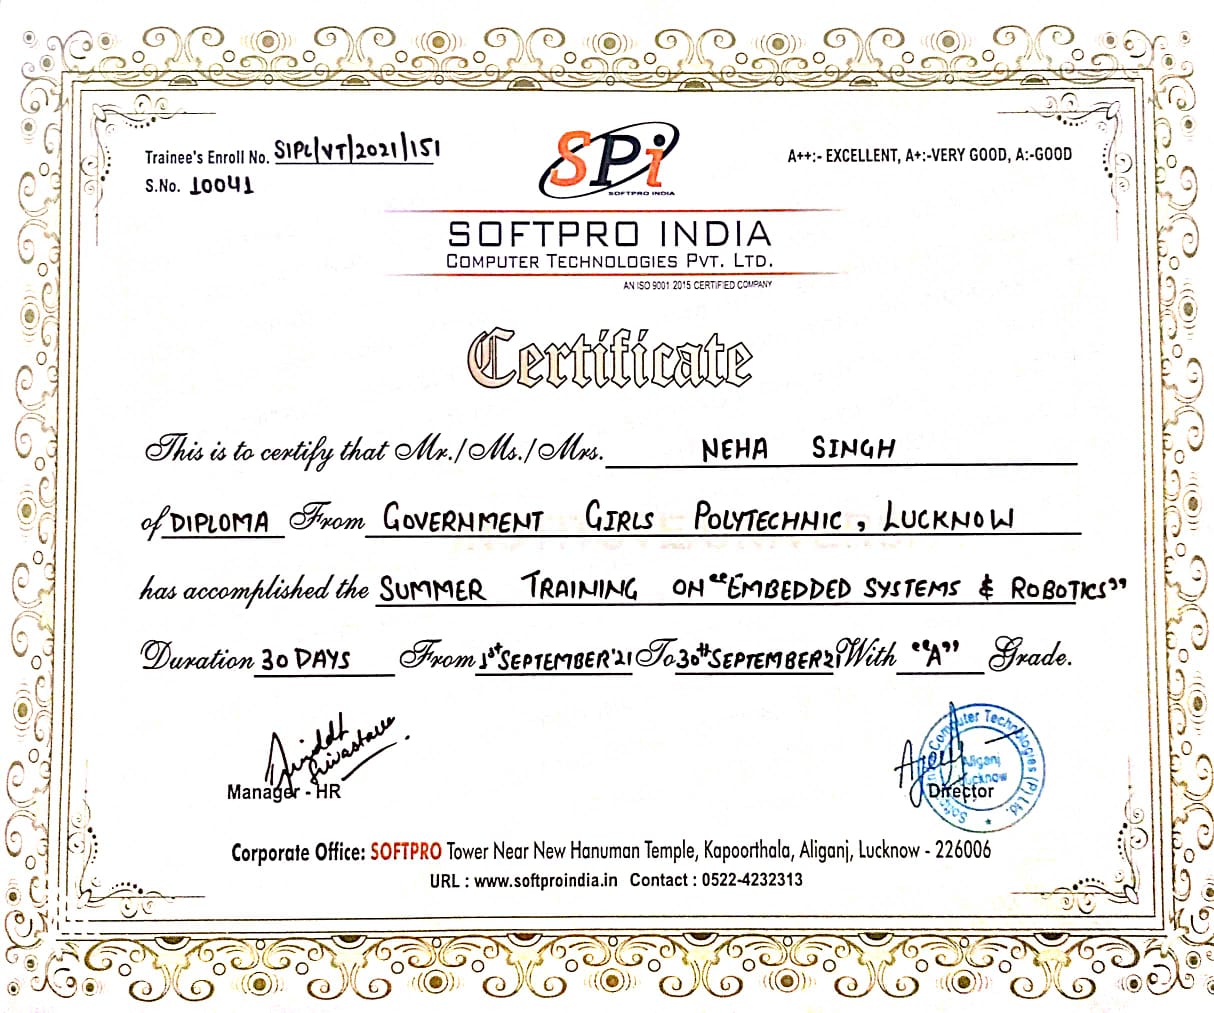 Trainee's Enroll No. SIPL/VT/2021/151
S.No. 10041
SPi
SOFTPRO INDIA
A++:- EXCELLENT, A+:-VERY GOOD, A:-GOOD
SOFTPRO INDIA
COMPUTER TECHNOLOGIES PVT. LTD.
AN ISO 9001 2015 CERTIFIED COMPANY
Certificate
This is to certify that Mr./Ms./Mrs. NEHA SINGH
of DIPLOMA From GOVERNMENT GIRLS POLYTECHNIC, LUCKNOW
has accomplished the SUMMER TRAINING ON "EMBEDDED SYSTEMS & ROBOTICS"
Duration 30 DAYS From 1st SEPTEMBER'21 To 30th SEPTEMBER'21 With "A" Grade.
Srivastava
Manager - HR
Computer Technologies (P) Ltd.
Aliganj
Lucknow
Director
Corporate Office: SOFTPRO Tower Near New Hanuman Temple, Kapoorthala, Aliganj, Lucknow - 226006
URL : www.softproindia.in Contact : 0522-4232313